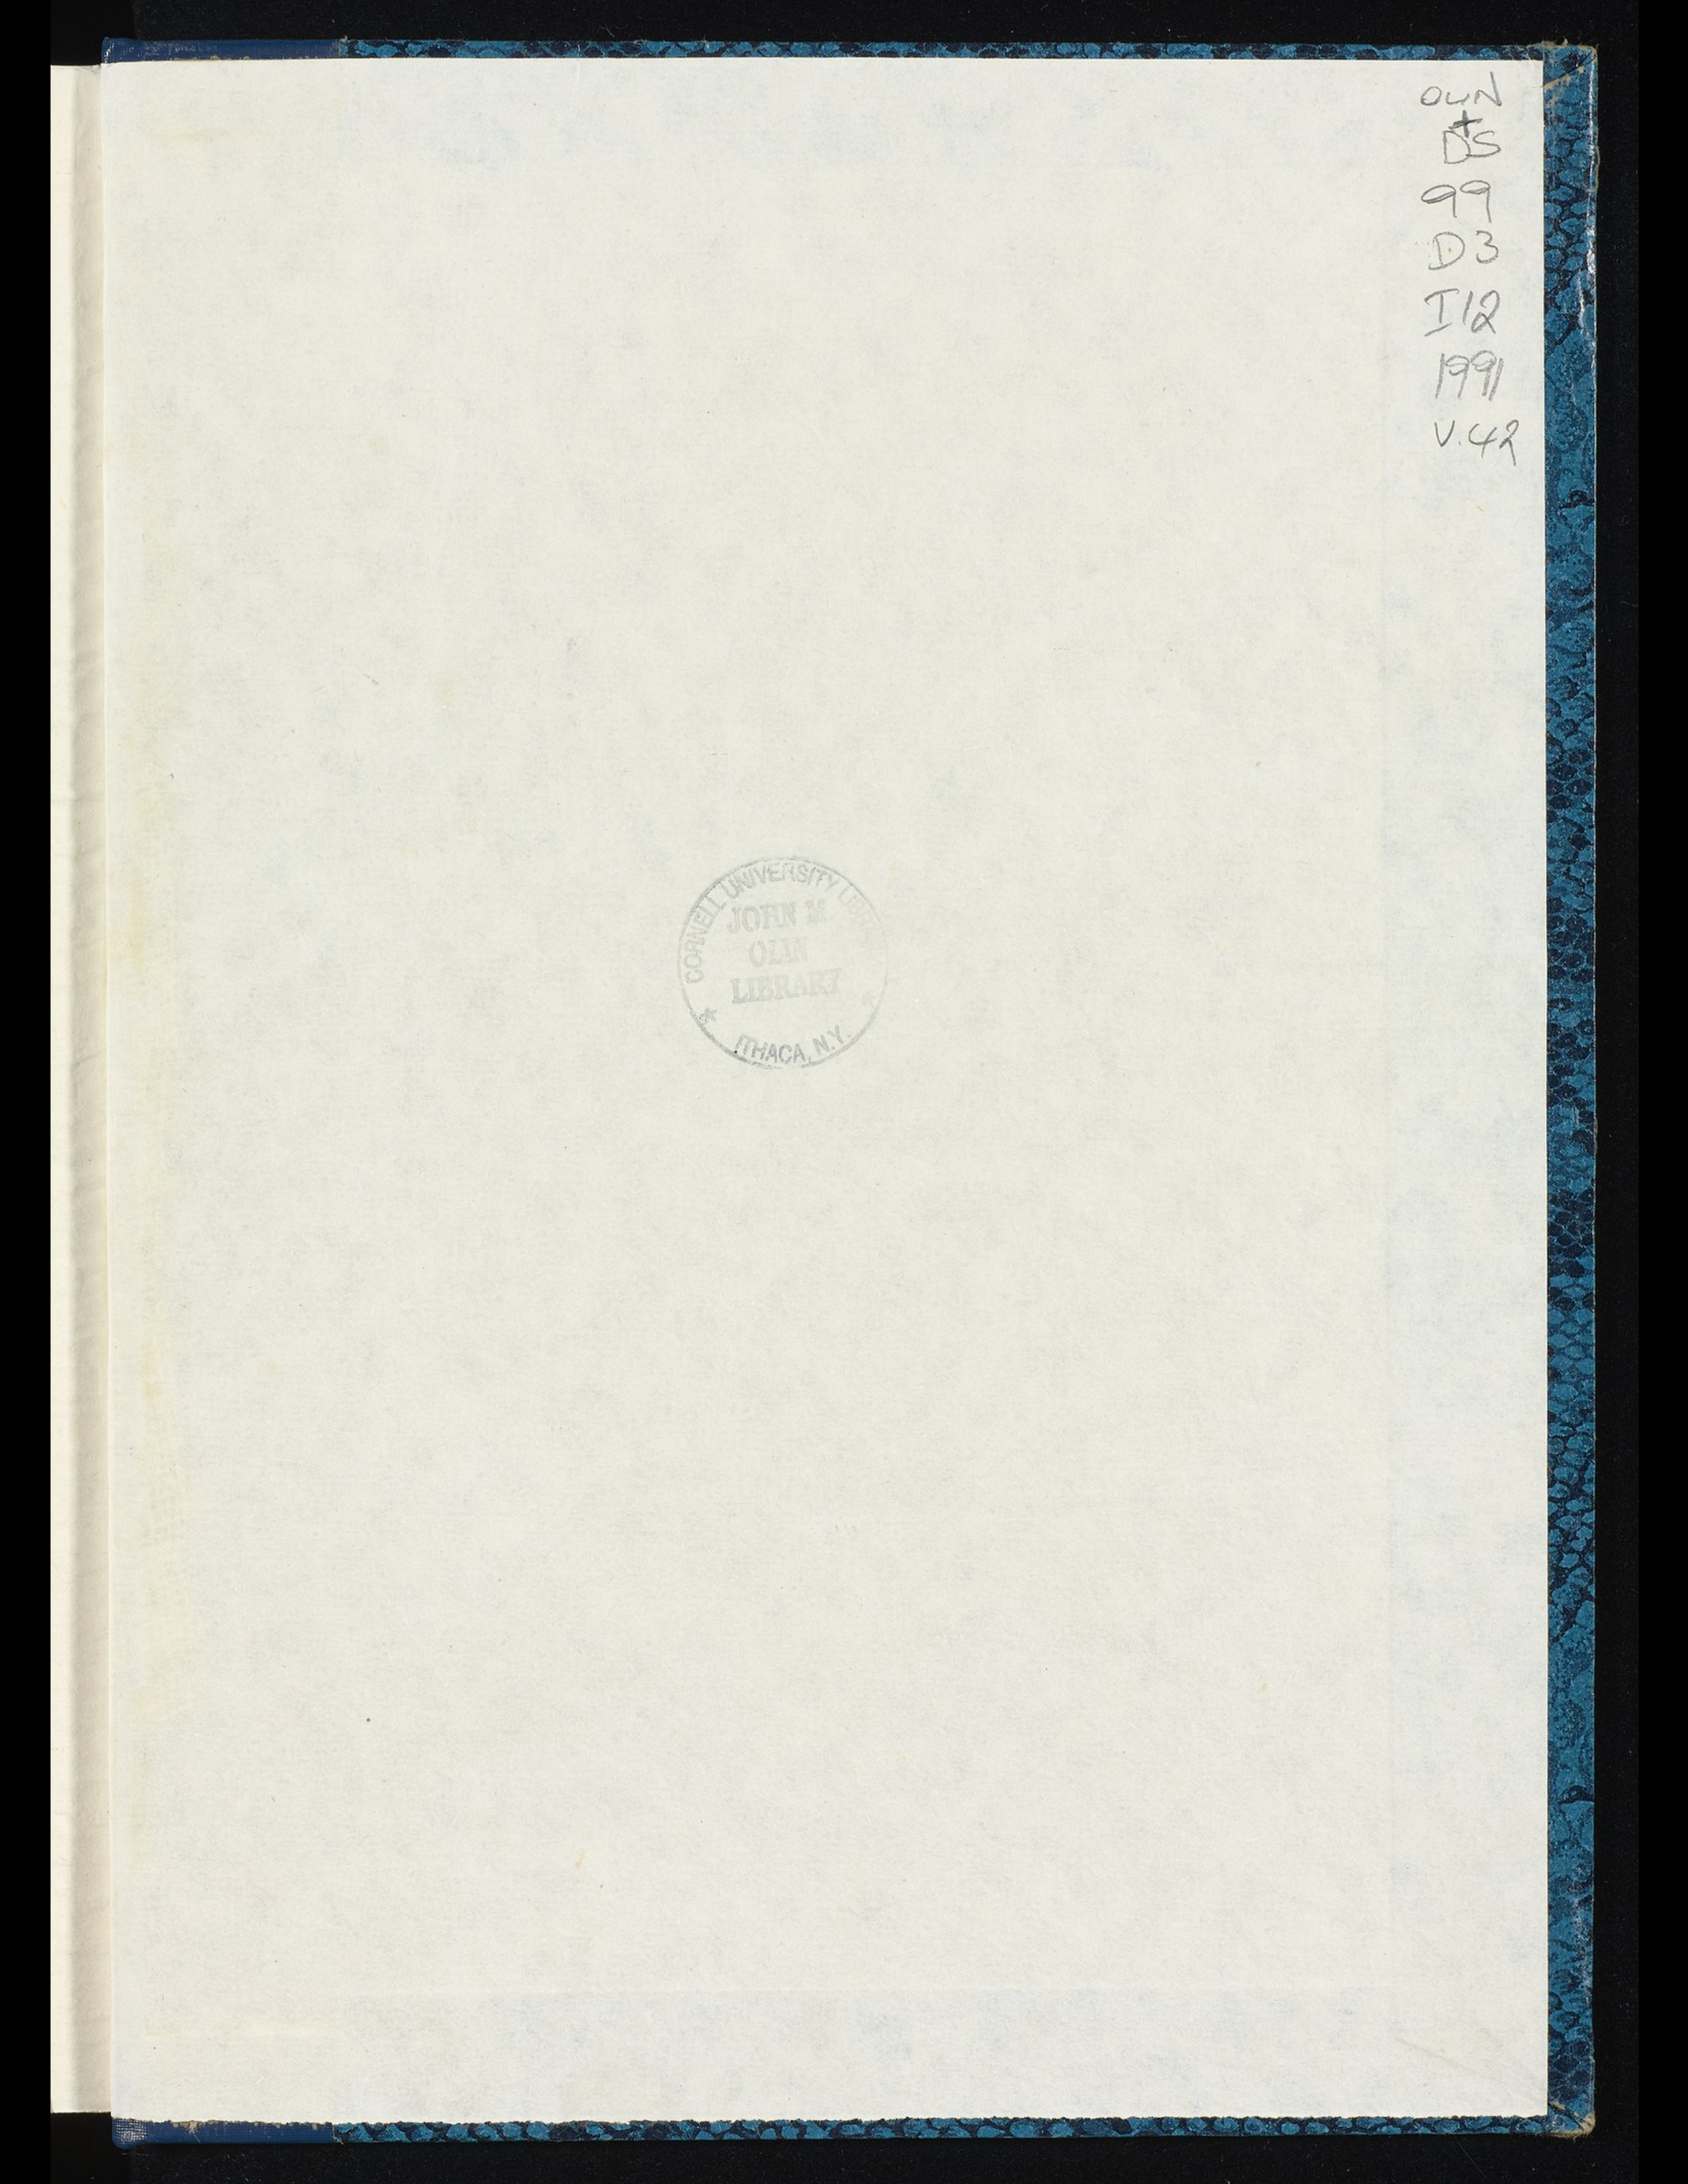 OLIN
+
DS
99
D3
I12
1991
V.42
CORNELL UNIVERSITY LIBRARY
JOHN M.
OLIN
LIBRARY
ITHACA, N.Y.